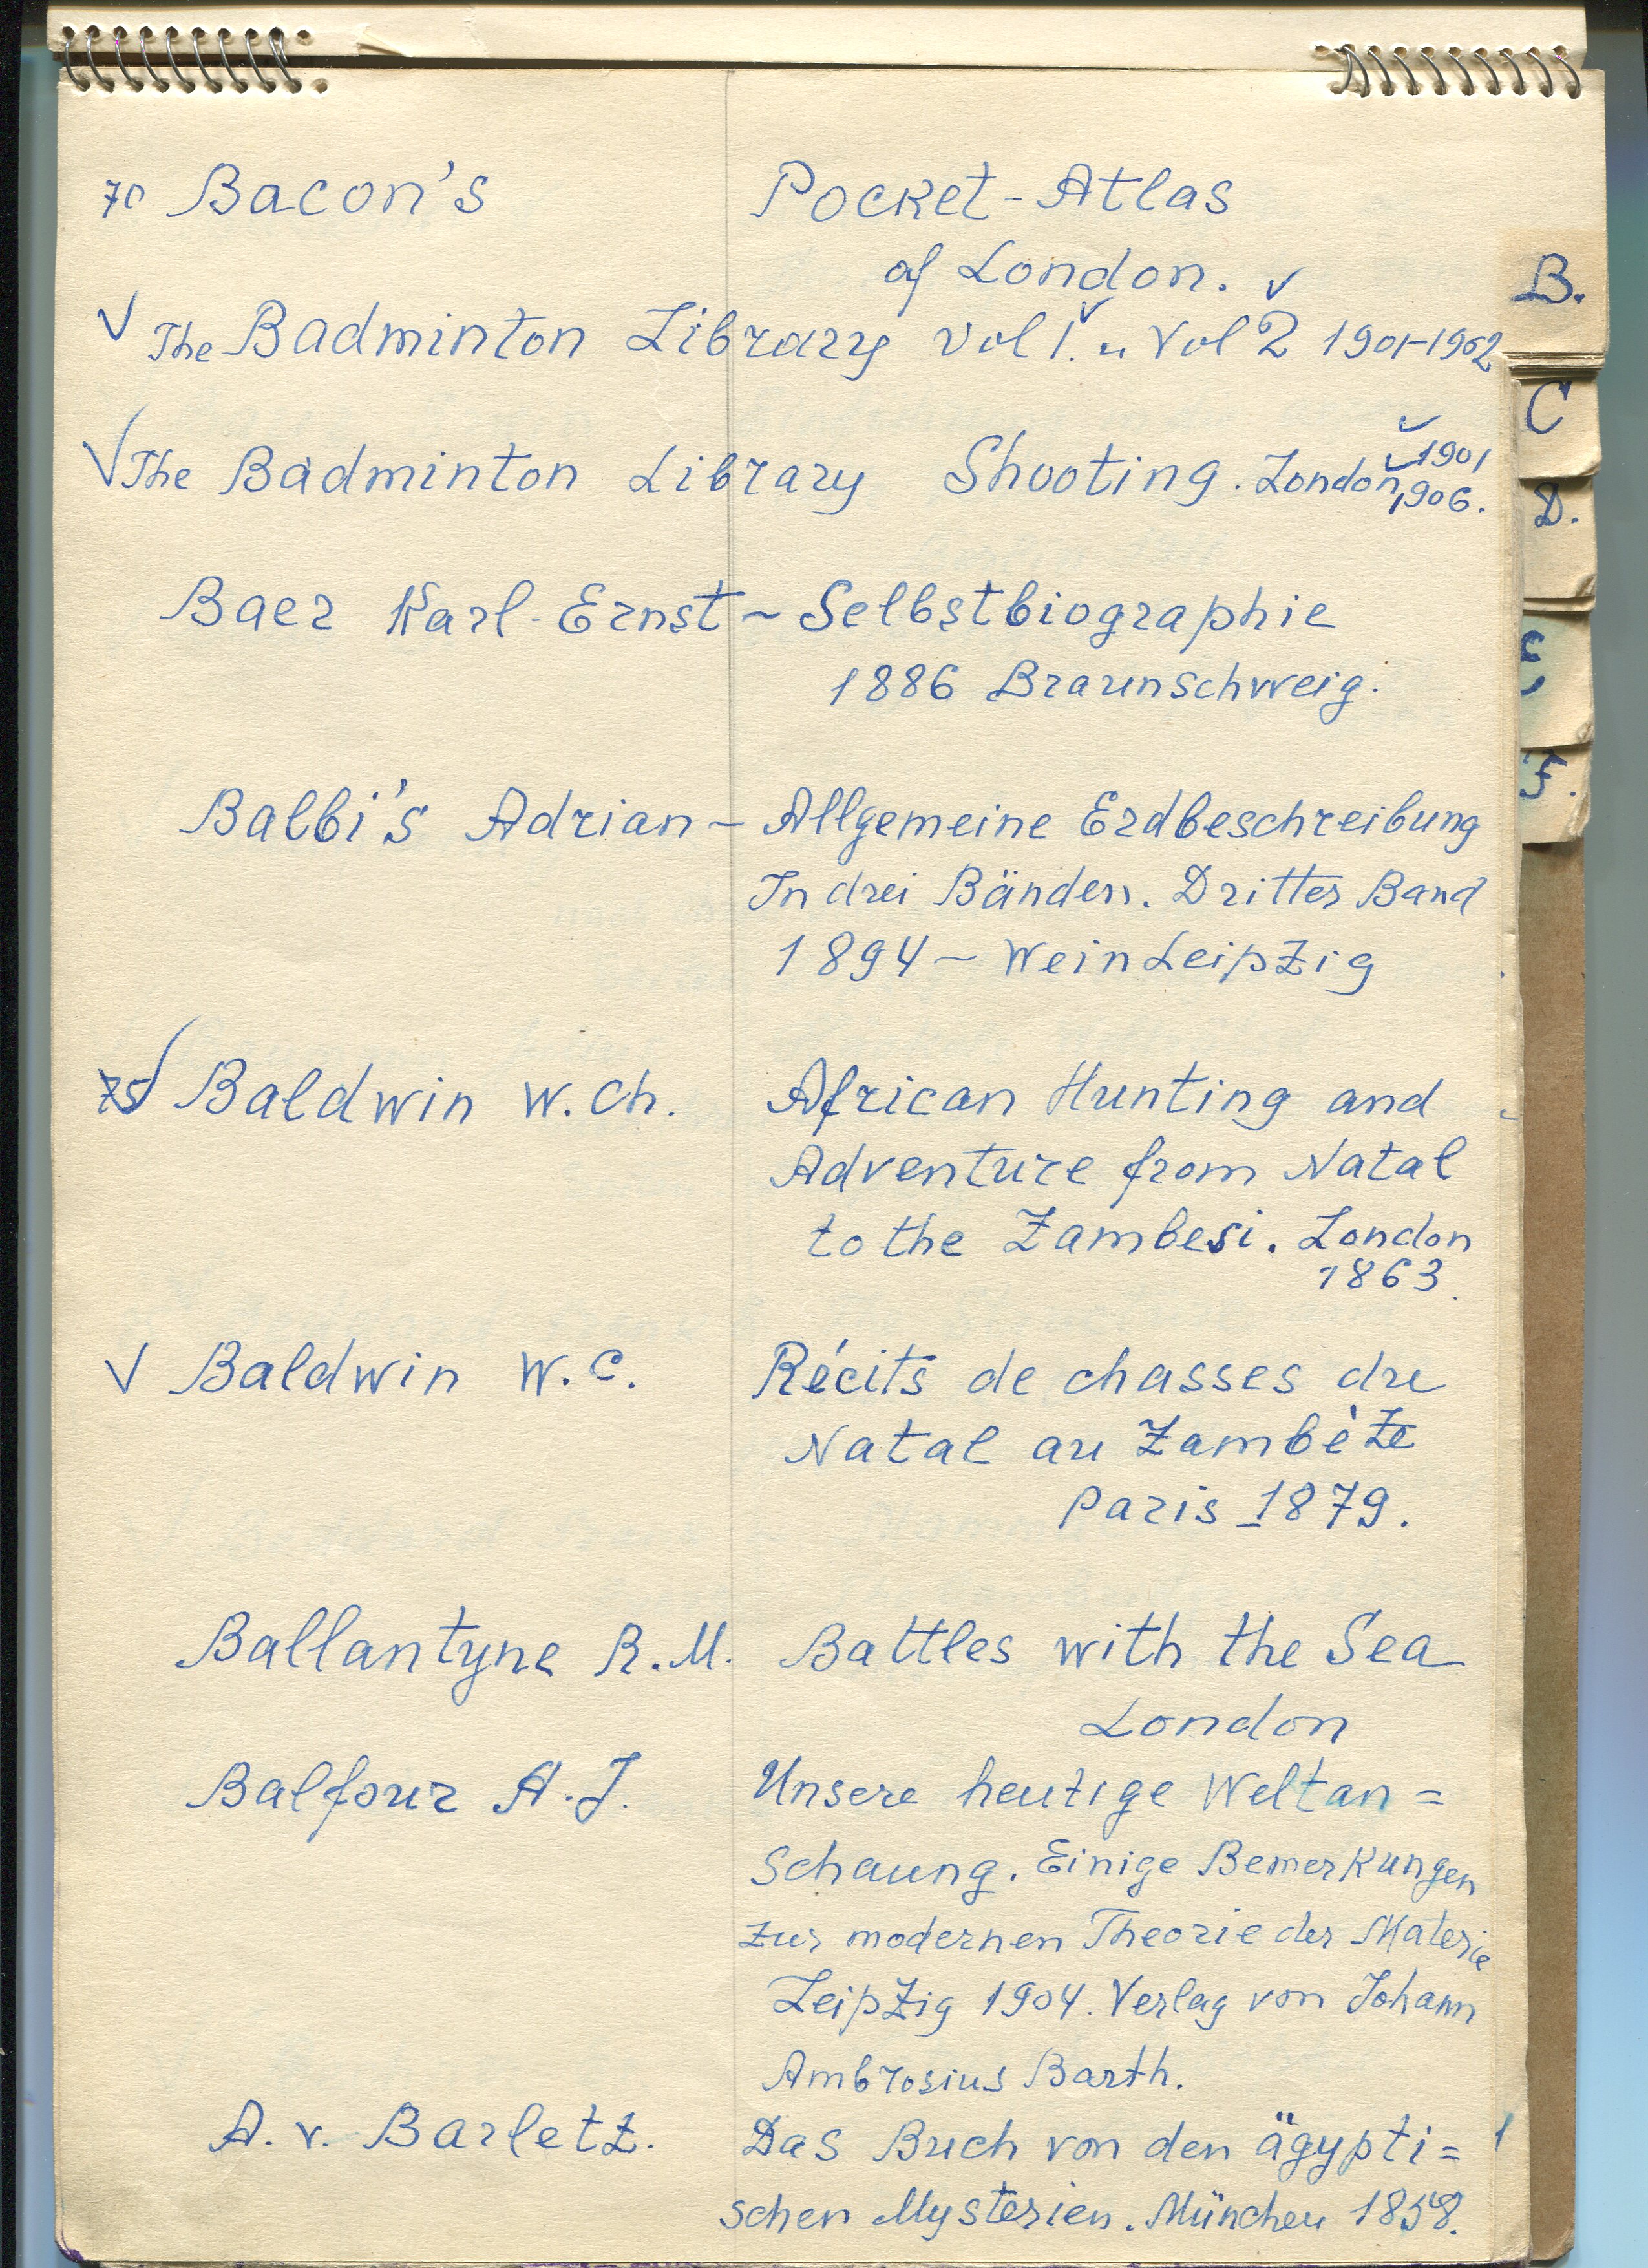 70 Bacon's Pocket-Atlas
of London. ✓
B.
✓ The Badminton Library Vol 1. u Vol 2 1901-1902
C
✓ The Badminton Library Shooting. London 1901
1906.
D.
Baer Karl-Ernst ~ Selbstbiographie
1886 Braunschweig.
E,
F.
Balbi's Adrian - Allgemeine Erdbeschreibung
In drei Bänden. Dritter Band
1894 ~ Wein Leipzig
75 ✓ Baldwin W. Ch. African Hunting and
Adventure from Natal
to the Zambesi. London
1863.
✓ Baldwin W. C. Récits de chasses du
Natal au Zambèze
Paris 1879.
Ballantyne R. M. Battles with the Sea
London
Balfour A. J. Unsere heutige Weltan=
schaung. Einige Bemerkungen
zur modernen Theorie der Materie
Leipzig 1904. Verlag von Johann
Ambrosius Barth.
A. v. Barletz. Das Buch von den ägypti=
schen Mysterien. München